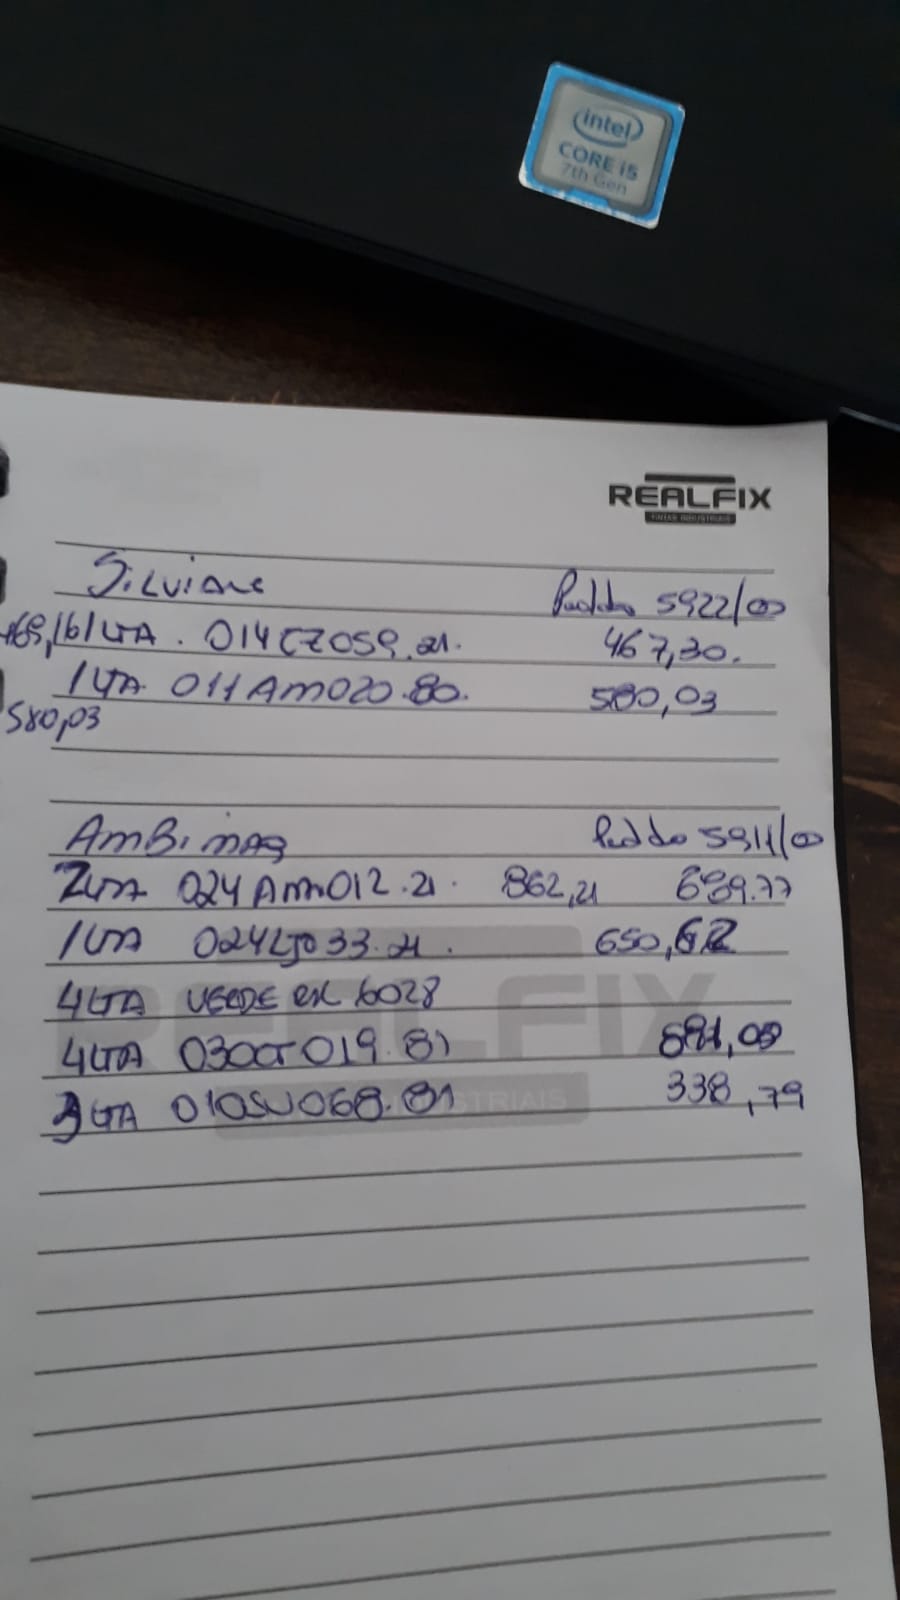 intel
CORE i5
7th Gen
REALFIX
TINTAS INDUSTRIAIS
Silviane Pedido 5922/00
469,16 1 LTA . 014CZ059.21. 467,30.
1 LTA 011AM020.80. 580,03
580,03
AMBIMAQ Pedido 5911/00
2 LTA 024AM012.21. 862,21 689.77
1 LTA 024LJ033.21. 650,62
4 LTA VERDE RAL 6028
4 LTA 030CT019.81 691,09
3 LTA 010SU068.81 338,79
REALFIX
INDUSTRIAIS